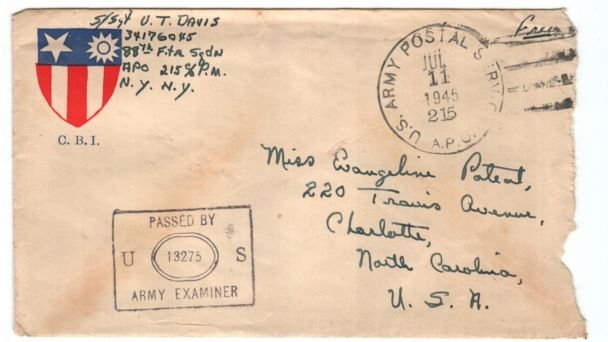 S/Sgt U. T. DAVIS
34176045
88th Ftr Sqdn
APO 215 % P.M.
N. Y. N.Y.
Free
C. B. I.
U.S. ARMY POSTAL SERVICE
JUL
11
1945
215
A.P.O.
Miss Evangeline Poteat,
220 Travis Avenue,
Charlotte,
North Carolina,
U. S. A.
PASSED BY
U 13275 S
ARMY EXAMINER